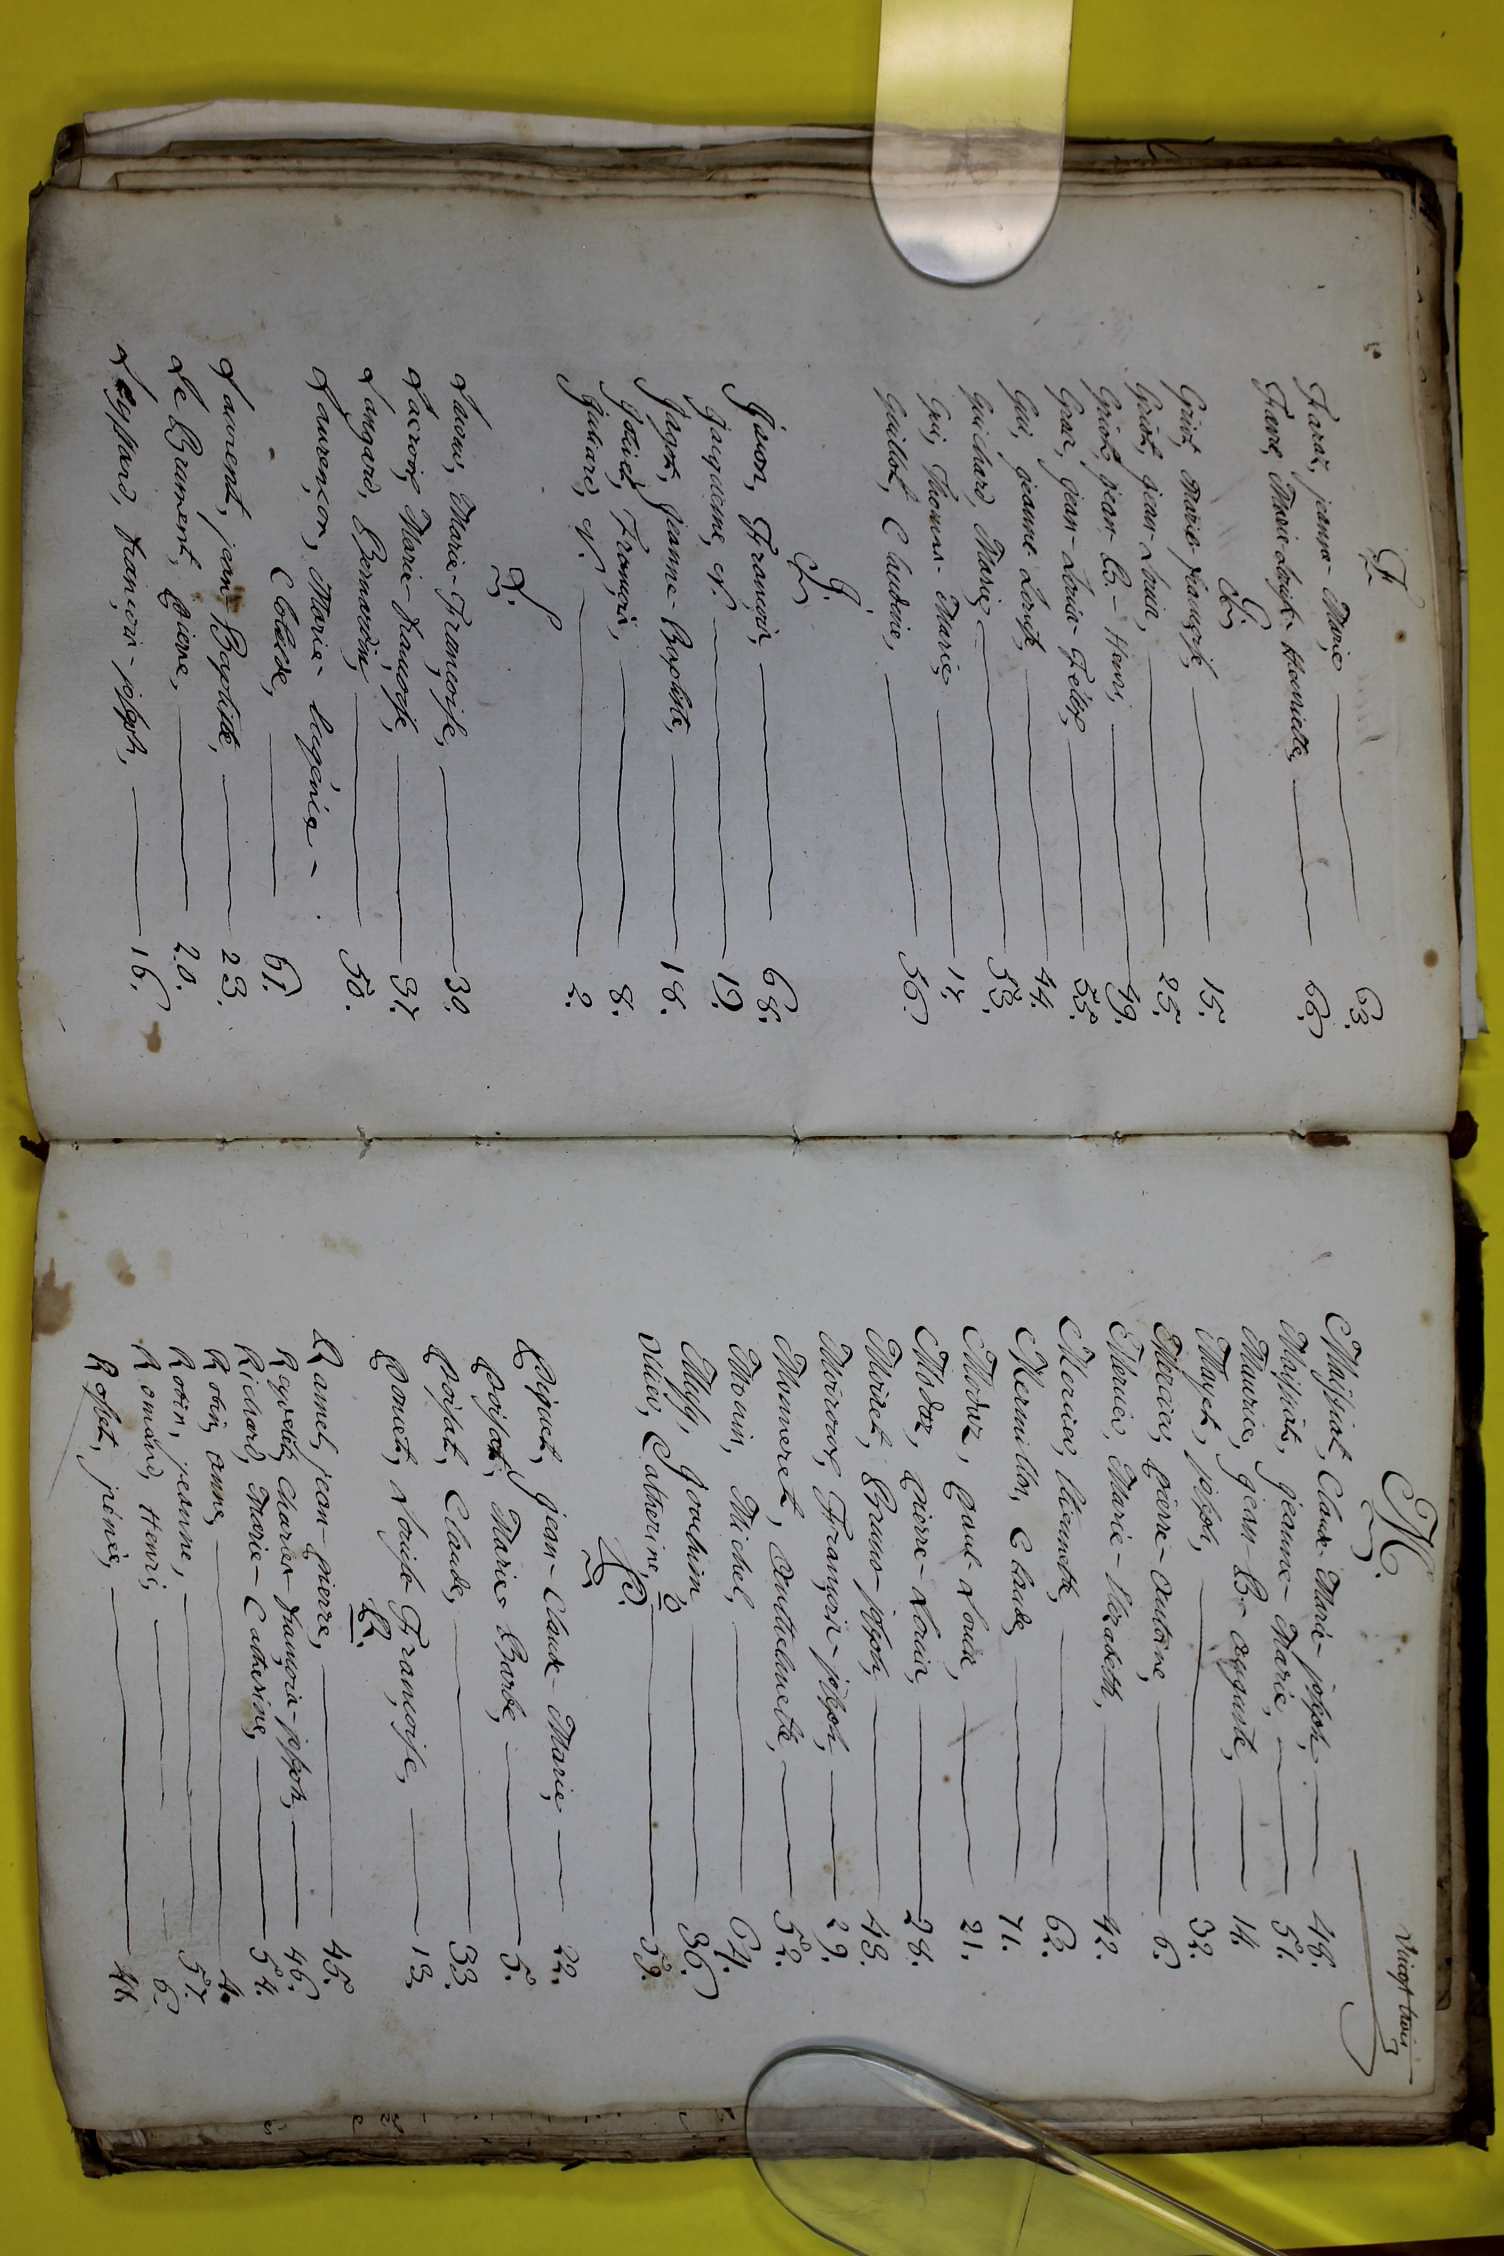 F.
Faraz, jeanne-Marie 63.
Favre, Marie Louise-Henriette, 66.
G.
Griot, Marie françoise, 15.
Griot, jean-Louis, 25.
Griot, jean-Ba-Henri, 49.
Gros, jean-Louis-Félix, 55.
Gui, jeanne Louise, 44.
Guichard, Marie, 53.
Gui, Thomas-Marie, 14.
Guillot, Claudine, 56.
J.
Jason, François, 68.
Jacquenne, N. 19.
Jagot, Jeanne-Baptiste, 18.
François, 8.
Juliard, N. 2.
L.
Marie-Françoise, 30.
Lacroix, Marie-françoise, 37.
Langard, Bernardin, 50.
Laurenson, Marie-Eugénie-
Clotilde, 61.
Laurent, jean-Baptiste, 23.
Le Grument, Pierre, 20.
françois-joseph, 16.
Vingt trois
M.
Maissiat, Claude-Marie-joseph, 48.
Maissiat, jeanne-Marie, 51.
Maurice, jean-B.-Auguste, 14.
Mayet, joseph, 32.
Mercier, Pierre-Antoine, 6.
Mercier, Marie-Elizabeth, 42.
Mercier, Etiennette, 62.
Mermillon, Claude, 71.
Modaz, Paul Louis, 21.
Modaz, Pierre-Louis, 28.
Moiret, Bruno-joseph, 48.
Moiroux, François-joseph, 29.
Monneret, Anthelmette, 52.
Morin, Michel, 64.
Joachim 36.
O
Catherine, 59.
P.
Piquet, jean-Claude-Marie, 22.
Poisat, Marie Barbe, 5.
Poisat, Claude, 33.
Poncet, Louise Françoise, 13.
R.
Ramel, jean-pierre, 45.
Reydelet, Charles-françois-joseph, 46.
Richard, Marie-Catherine, 54.
Robin, anne, 4.
Robin, jeanne, 57.
Romand, Henri, 6.
Rosset, 41.